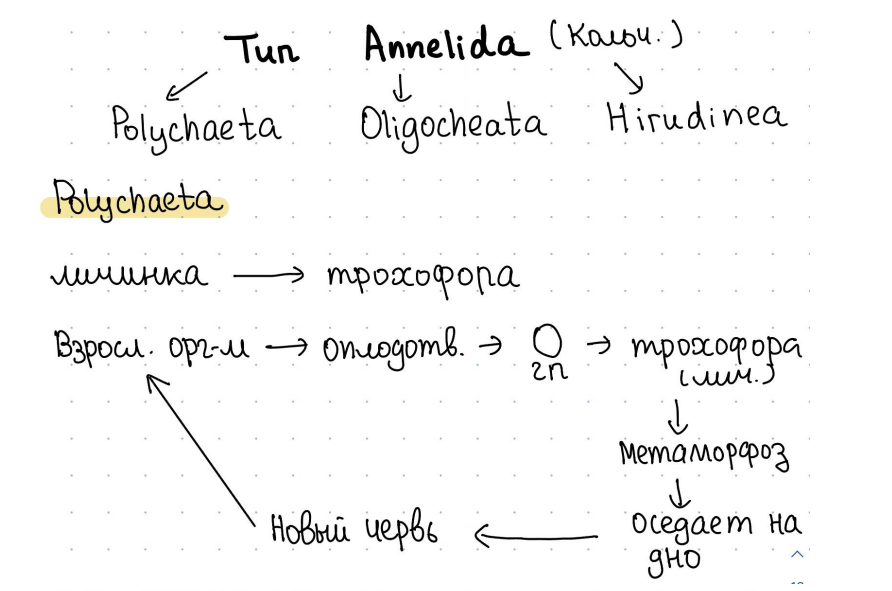 Тип Annelida (Кольч.)
Polychaeta Oligocheata Hirudinea
Polychaeta
личинка → трохофопа
Взросл. орг-м → оплодотв. → 2n → трохофора
(лич.)
метаморфоз
оседает на
дно
Новый червь